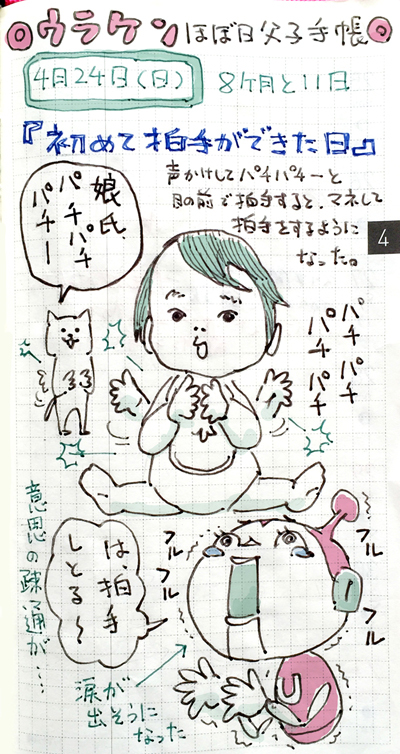 ウラケン ほぼ日父子手帳
4月24日(日)
8ヶ月と11日
『初めて拍手ができた日』
声かけしてパチパチーと
目の前で拍手すると、マネして
拍手をするように
なった。
4
娘氏、
パチパチ
パチー
パチ
パチ
パチ
パチ
は、拍手
しとる〜
フルフル
フルフル
フル
フル
意思の疎通が…
涙が
出そうに
なった